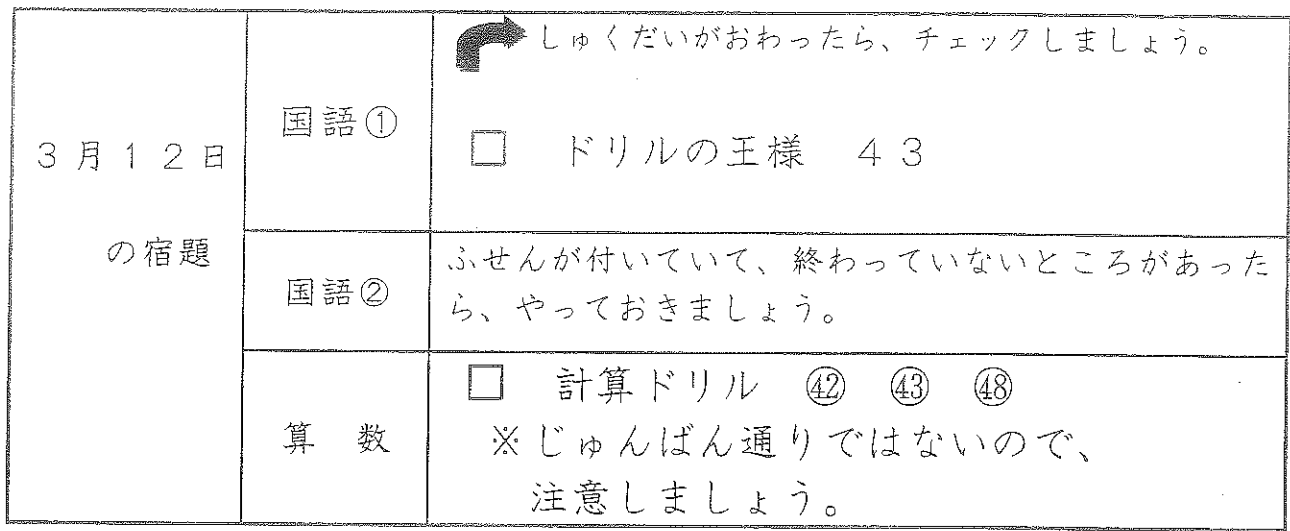 3月12日
の宿題
国語①
しゅくだいがおわったら、チェックしましょう。
□ ドリルの王様 43
国語②
ふせんが付いていて、終わっていないところがあった
ら、やっておきましょう。
算 数
□ 計算ドリル ㊷ ㊸ ㊽
※じゅんばん通りではないので、
注意しましょう。